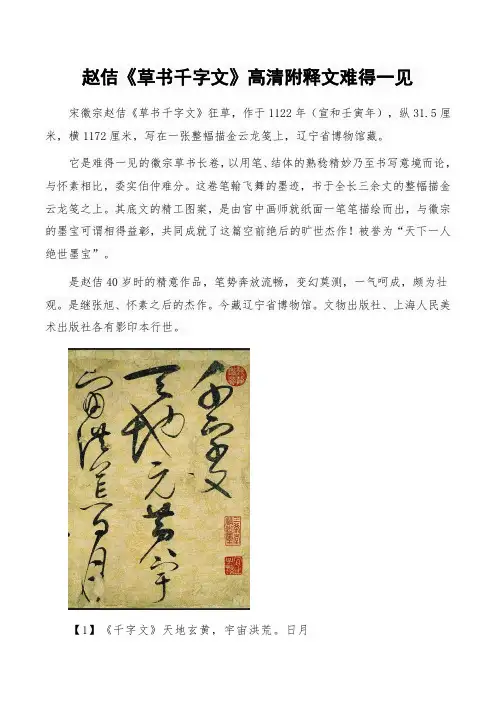 赵佶《草书千字文》高清附释文难得一见
宋徽宗赵佶《草书千字文》狂草，作于1122年（宣和壬寅年），纵31.5厘
米，横1172厘米，写在一张整幅描金云龙笺上，辽宁省博物馆藏。
它是难得一见的徽宗草书长卷，以用笔、结体的熟稔精妙乃至书写意境而论，
与怀素相比，委实伯仲难分。这卷笔翰飞舞的墨迹，书于全长三余文的整幅描金
云龙笺之上。其底文的精工图案，是由宫中画师就纸面一笔笔描绘而出，与徽宗
的墨宝可谓相得益彰，共同成就了这篇空前绝后的旷世杰作！被誉为“天下一人
绝世墨宝”。
是赵佶40岁时的精意作品，笔势奔放流畅，变幻莫测，一气呵成，颇为社
观。是继张旭、怀素之后的杰作。今藏辽宁省博物馆。文物出版社、上海人民美
术出版社各有影印本行世。
千字文
天地元黄宇
宙洪荒日月
【1】《千字文》天地玄黄，宇宙洪荒。日月